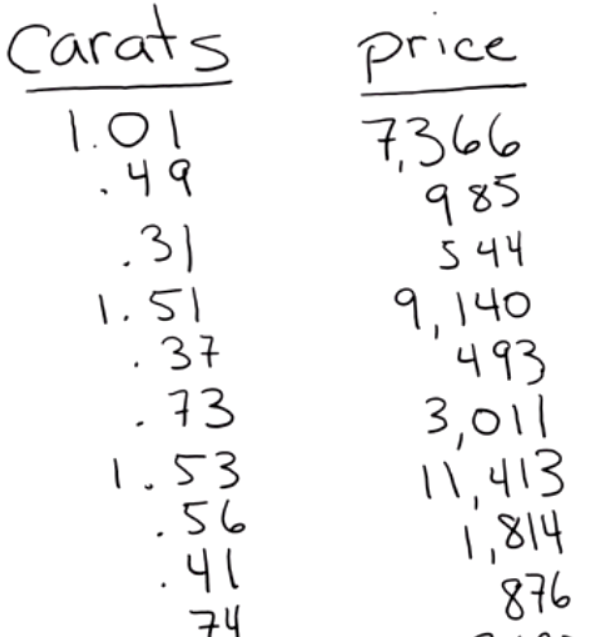 Carats price
1.01 7,366
.49 985
.31 544
1.51 9,140
.37 493
.73 3,011
1.53 11,413
.56 1,814
.41 876
74